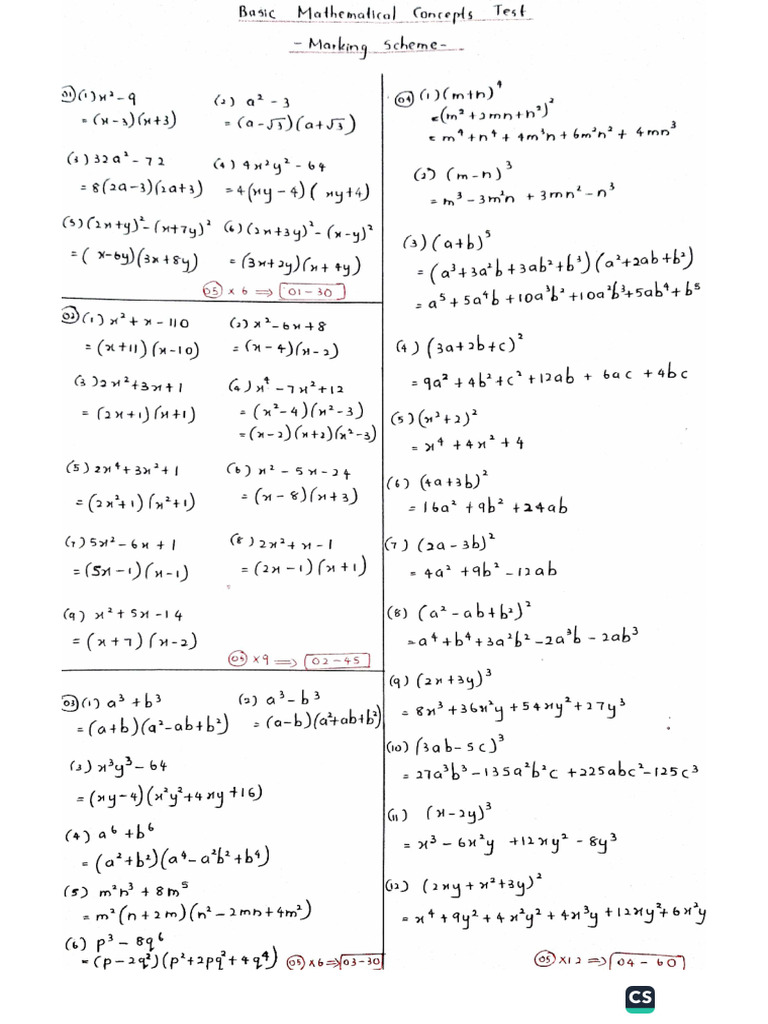 Basic Mathematical Concepts Test
- Marking Scheme -
01 (1) x² - 9
= (x-3)(x+3)
(2) a² - 3
= (a-√3)(a+√3)
(3) 32a² - 72
= 8(2a-3)(2a+3)
(4) 4x²y² - 64
= 4(xy-4)(xy+4)
(5) (2x+y)² - (x+7y)²
= (x-6y)(3x+8y)
(6) (2x+3y)² - (x-y)²
= (3x+2y)(x+4y)
05 × 6 ⟹ 01-30
02 (1) x² + x - 110
= (x+11)(x-10)
(2) x² - 6x + 8
= (x-4)(x-2)
(3) 2x² + 3x + 1
= (2x+1)(x+1)
(4) x⁴ - 7x² + 12
= (x²-4)(x²-3)
= (x-2)(x+2)(x²-3)
(5) 2x⁴ + 3x² + 1
= (2x²+1)(x²+1)
(6) x² - 5x - 24
= (x-8)(x+3)
(7) 5x² - 6x + 1
= (5x-1)(x-1)
(8) 2x² + x - 1
= (2x-1)(x+1)
(9) x² + 5x - 14
= (x+7)(x-2)
05 × 9 ⟹ 02-45
03 (1) a³ + b³
= (a+b)(a²-ab+b²)
(2) a³ - b³
= (a-b)(a²+ab+b²)
(3) x³y³ - 64
= (xy-4)(x²y²+4xy+16)
(4) a⁶ + b⁶
= (a²+b²)(a⁴-a²b²+b⁴)
(5) m²n³ + 8m⁵
= m²(n+2m)(n²-2mn+4m²)
(6) p³ - 8q⁶
= (p-2q²)(p²+2pq²+4q⁴)
05 × 6 ⟹ 03-30
04 (1) (m+n)⁴
= (m²+2mn+n²)²
= m⁴+n⁴+4m³n+6m²n²+4mn³
(2) (m-n)³
= m³-3m²n+3mn²-n³
(3) (a+b)⁵
= (a³+3a²b+3ab²+b³)(a²+2ab+b²)
= a⁵+5a⁴b+10a³b²+10a²b³+5ab⁴+b⁵
(4) (3a+2b+c)²
= 9a²+4b²+c²+12ab+6ac+4bc
(5) (x²+2)²
= x⁴+4x²+4
(6) (4a+3b)²
= 16a²+9b²+24ab
(7) (2a-3b)²
= 4a²+9b²-12ab
(8) (a²-ab+b²)²
= a⁴+b⁴+3a²b²-2a³b-2ab³
(9) (2x+3y)³
= 8x³+36x²y+54xy²+27y³
(10) (3ab-5c)³
= 27a³b³-135a²b²c+225abc²-125c³
(11) (x-2y)³
= x³-6x²y+12xy²-8y³
(12) (2xy+x²+3y)²
= x⁴+9y²+4x²y²+4x³y+12xy²+6x²y
05 × 12 ⟹ 04-60
CS